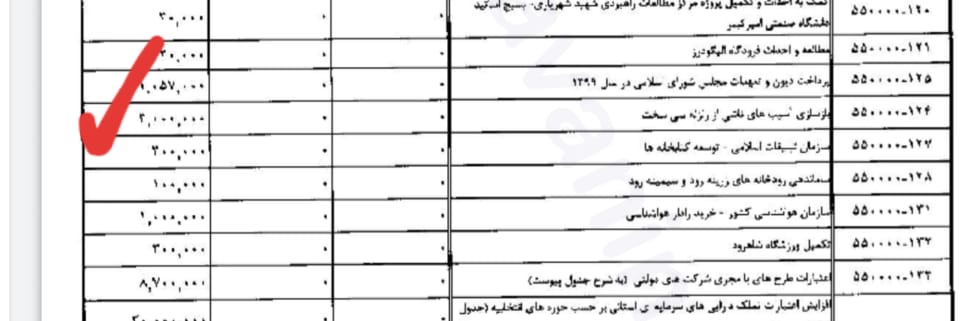 کمک به احداث و تکمیل پروژه مرکز مطالعات راهبردی شهید شهریاری- بسیج اساتید ۵۵۰۰۰۰-۱۲۰
دانشگاه صنعتی امیرکبیر ۰ ۰ ۳۰,۰۰۰
۵۵۰۰۰۰-۱۲۱ مطالعه و احداث فرودگاه الیگودرز ۰ ۰ ۳۰,۰۰۰
۵۵۰۰۰۰-۱۲۵ پرداخت دیون و تعهدات مجلس شورای اسلامی در سال ۱۳۹۹ ۰ ۰ ۱,۰۵۷,۰۰۰
۵۵۰۰۰۰-۱۲۴ بازسازی آسیب های ناشی از زلزله سی سخت ۰ ۰
۵۵۰۰۰۰-۱۲۷ سازمان تبلیغات اسلامی - توسعه کتابخانه ها ۰ ۰ ۳۰۰,۰۰۰
۵۵۰۰۰۰-۱۲۸ ساماندهی رودخانه های زرینه رود و سیمینه رود ۰ ۰ ۱۰۰,۰۰۰
۵۵۰۰۰۰-۱۳۱ سازمان هواشناسی کشور - خرید رادار هواشناسی ۰ ۰ ۱,۰۰۰,۰۰۰
۵۵۰۰۰۰-۱۳۲ تکمیل ورزشگاه شاهرود ۰ ۰ ۳۰۰,۰۰۰
۵۵۰۰۰۰-۱۳۳ اعتبارات طرح های با مجری شرکت های دولتی (به شرح جدول پیوست) ۰ ۰ ۸,۷۰۰,۰۰۰
افزایش اعتبارت تملک دارایی های سرمایه ی استانی بر حسب حوزه های انتخابیه (جدول